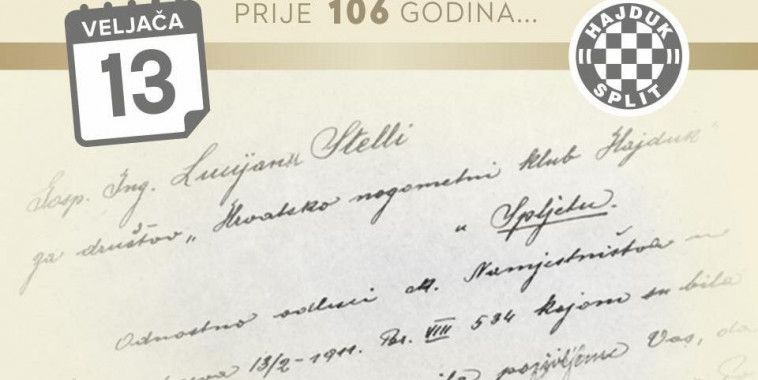 VELJAČA
13
PRIJE 106 GODINA...
HAJDUK
SPLIT
Gosp. Ing. Lucijanu Stelli
za društvo „Hrvatsko nogometni klub Hajduk"
u Spljetu.
Odnostno odluci c.k. Namjestništva u
13/2-1911. Br. VIII 534 kojom su bila
pozivljemo Vas, da